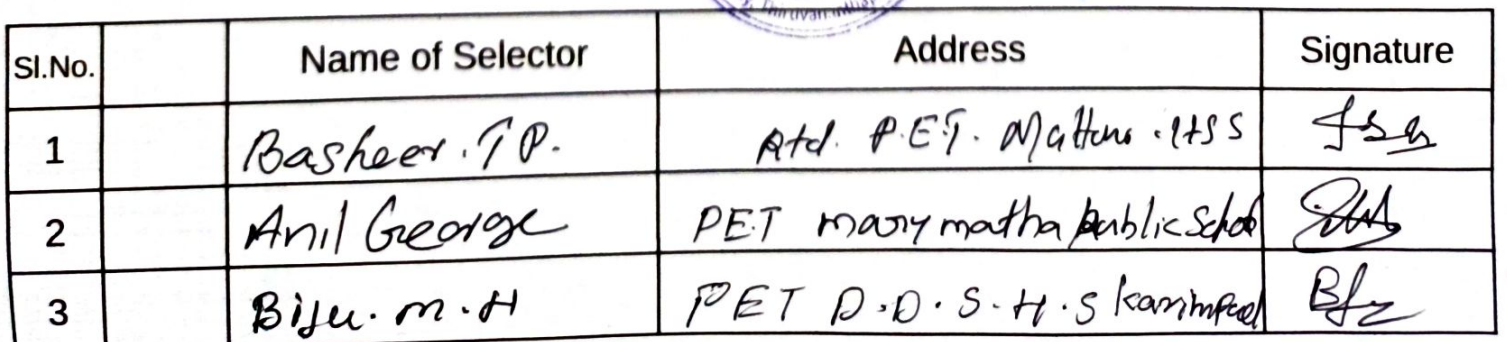 Thiruvananthap
Sl.No. Name of Selector Address Signature
1 Basheer. T P. Rtd. P.E.T. Mattom. HSS
2 Anil George PET mary matha public School
3 Biju. m. H PET D.D.S.H.S karimpad